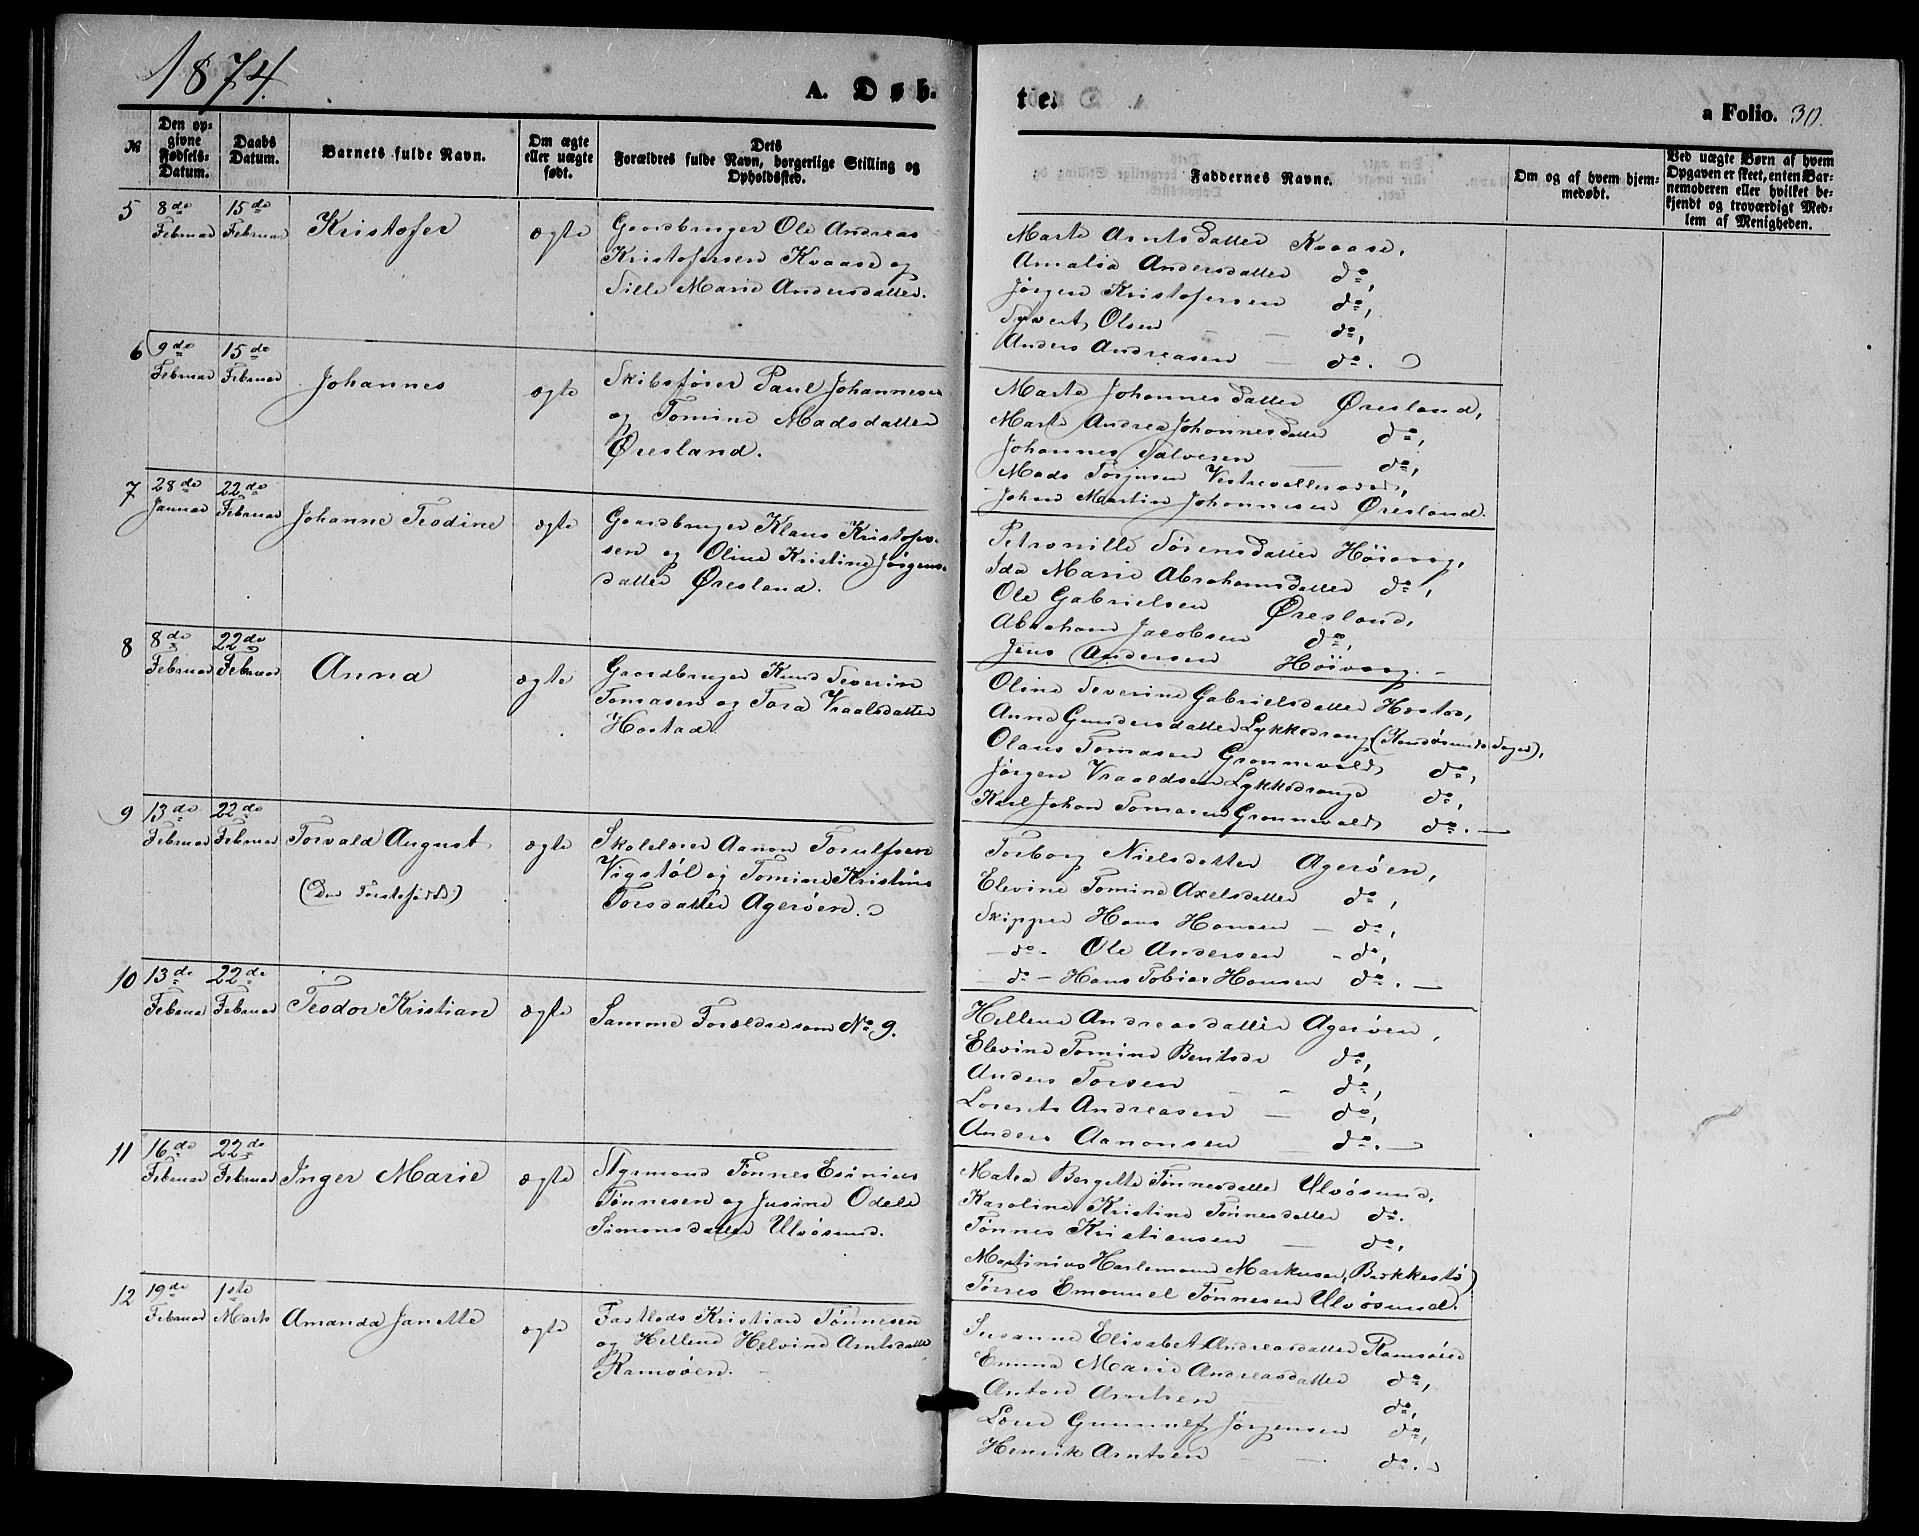 1874.
A. Døb-
te.
a Folio. 30.
№
Den op-
givne
Fødsels-
Datum.
Daabs
Datum.
Barnets fulde Navn.
Om ægte
eller uægte
født.
Dets
Forældres fulde Navn, borgerlige Stilling og
Opholdssted.
Faddernes Navne.
Om og af hvem hjem-
medøbt.
Ved uægte Børn af hvem
Opgaven er skeet, enten Bar-
nemoderen eller hvilket be-
kjendt og troværdigt Med-
lem af Menigheden.
5
8de
Februar
15de
Februar
Kristofer
ægte
Gaardbruger Ole Andreas
Kristofersen Kvaase og
Sille Marie Andersdatter.
Marte Arntsdatter Kvaase,
Amalia Andersdatter do,
Jørgen Kristofersen do,
Syvert Olsen - - do,
Anders Andreasen - do.
6
9de
Februar
15de
Februar
Johannes
ægte
Skibsfører Paul Johannesen
og Tomine Madsdatter
Øresland.
Marte Johannesdatter Øresland,
Marte Andrea Johannesdatter do,
Johannes Salvesen - do,
Mads Torjusen
Johan Martin Johannesen Øresland.
7
28de
Januar
22de
Februar
Johanne Teodine
ægte
Gaardbruger Klaus Kristofer-
sen og Oline Kristine Jørgens-
datter Øresland.
Petronille Sørensdatter Høivaag,
Ida Marie Abrahamsdatter do,
Ole Gabrielsen Øresland,
Abraham Jacobsen do,
Jens Andersen Höivaag. -
8
8de
Februar
22de
Februar
Anna
ægte
Gaardbruger Knud Severin
Tomasen og Tora Vraalsdatter
Hæstad.
Oline Severine Gabrielsdatter
Anne Gundersdatter Lykkedrang
Olaus Tomasen Grønnevold do,
Jørgen Vraaldsen Lykkedrang do,
Karl Johan Tomasen Grønnevold do. -
9
13de
Februar
22de
Februar
Torvald August
(Den Førstefødte)
ægte
Skolelærer Aanon Torulfsen
Vigstøl og Tomine Kristine
Torsdatter Agerøen.
Torborg Nielsdatter Agerøen,
Elevine Tomine Axelsdatter do,
Skipper Hans Hansen - do,
-do- Ole Andersen - do,
-do- Hans Tobias Hansen do. -
10
13de
Februar
22de
Februar
Teodor Kristian
ægte
Samme Forældre som No 9.
Hellene Andreasdatter Agerøen,
Elevine Tomine Bentsdr do,
Anders Torsen - - do,
Lorents Andreasen - do,
Anders Aanonsen do. -
11
16de
Februar
22de
Februar
Inger Marie
ægte
Styrmand Tønnes Esinius
Tønnesen og Jusine Odele
Simonsdatter Ulvøsund.
Matea Bergette Tønnesdatter Ulvøsund,
Karoline Kristine Tønnesdatter do.
Tønnes Kristiansen - do,
Martinius Harlemand Markusen, Brækkestø
Tørres Emanuel Tønnesen Ulvøsund.
12
19de
Februar
1ste
Marts
Amanda Janette
ægte
Fastlods Kristian Tønnesen
og Hellene Helvine Arntsdatter
Ramsøen. -
Susanne Elisabet Andreasdatter Ramsøen
Emma Marie Andreasdatter do,
Anton Arntsen do,
Gunnulf Jørgensen do,
Henrik Arntsen - - do.